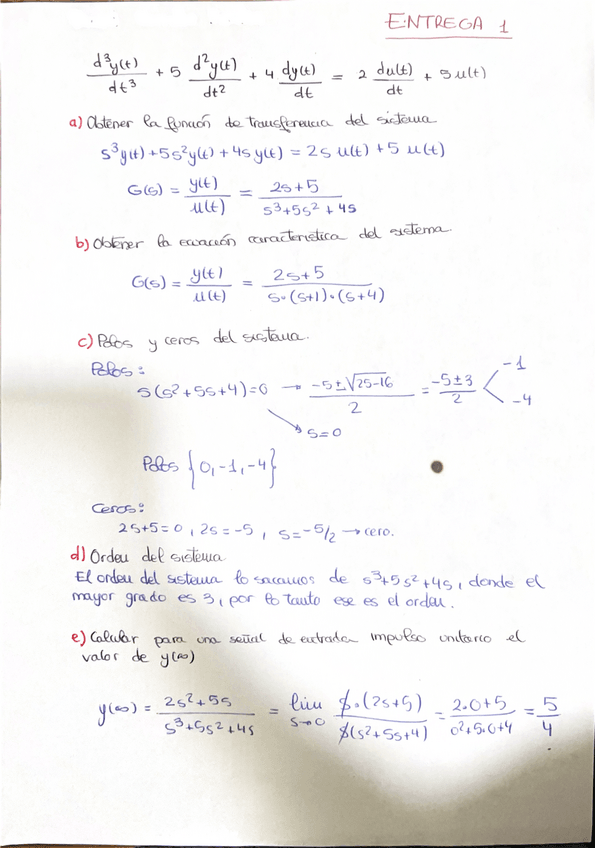 ENTREGA 1
d³y(t)/dt³ + 5 d²y(t)/dt² + 4 dy(t)/dt = 2 du(t)/dt + 5 u(t)
a) Obtener la función de transferencia del sistema
s³y(t)+5s²y(t)+4sy(t) = 2s u(t) + 5 u(t)
G(s) = y(t)/u(t) = (2s+5)/(s³+5s²+4s)
b) Obtener la ecuación característica del sistema.
G(s) = y(t)/u(t) = (2s+5)/(s·(s+1)·(s+4))
c) Polos y ceros del sistema.
Polos:
s(s²+5s+4)=0 → (-5±√25-16)/2 = (-5±3)/2 < -1
-4
s=0
Polos {0,-1,-4}
Ceros:
2s+5=0, 2s=-5, s=-5/2 → cero.
d) Orden del sistema
El orden del sistema lo sacamos de s³+5s²+4s, donde el
mayor grado es 3, por lo tanto ese es el orden.
e) Calcular para una señal de entrada impulso unitario el
valor de y(∞)
y(∞) = (2s²+5s)/(s³+5s²+4s) = lim s→0 s·(2s+5)/s(s²+5s+4) = (2·0+5)/(0²+5·0+4) = 5/4